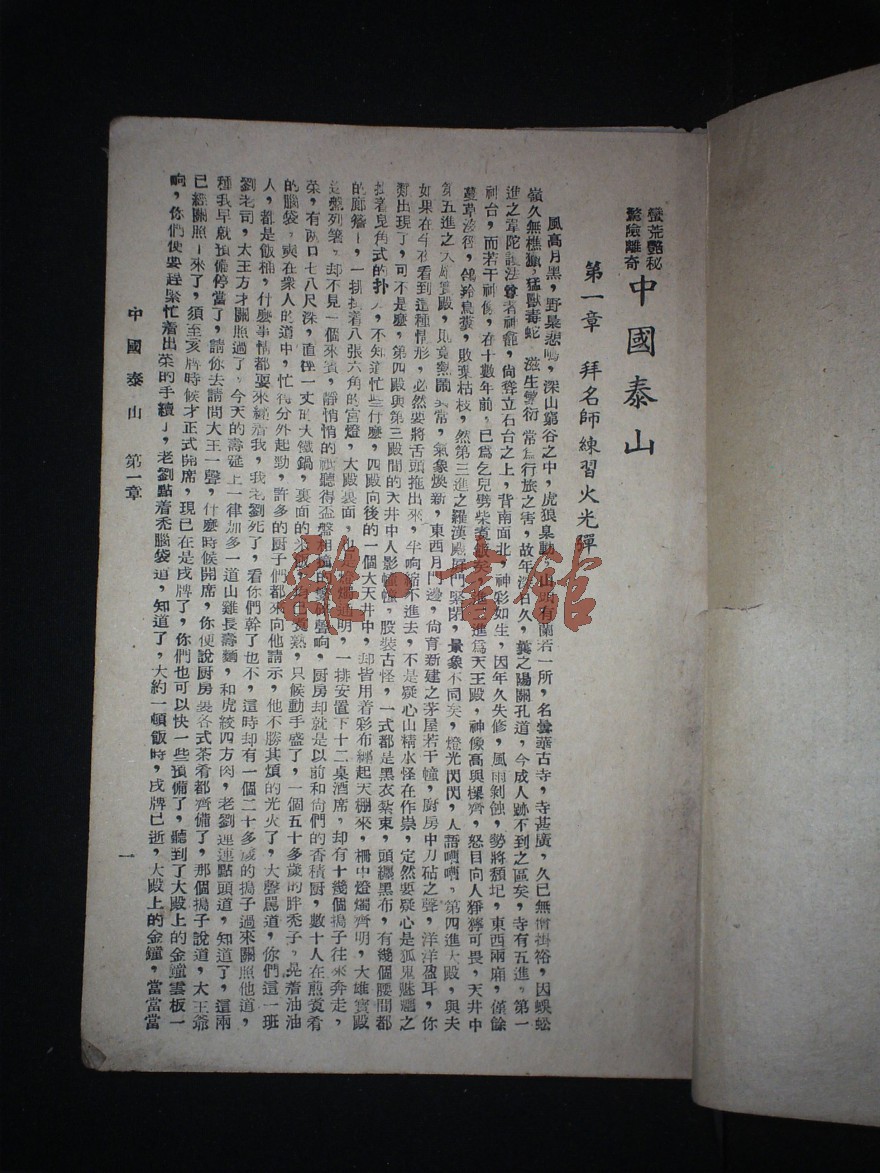 蠻荒艷秘
驚險離奇
中國泰山
第一章 拜名師練習火光彈
風高月黑，野梟悲鳴，深山窮谷之中，虎狼梟動，山明有蘭若一所，名雲華古寺，寺甚廣，久已無僧掛褡，因蜈蚣
嶺久無樵獵，猛獸毒蛇，滋生繁衍，常為行旅之害，故年深日久，糞之陽關孔道，今成人跡不到之區矣，寺有五進，第一
進之韋陀護法尊者神龕，尚聳立石台之上，背南面北，神彩如生，因年久失修，風雨剝蝕，勢將頹圮，東西兩廂，僅餘
神台，而若干神像，在十數年前，已為乞兒劈柴煑飯矣，進二進為天王殿，神像高與樑齊，怒目向人猙獰可畏，天井中
蔓草淩徑，鴿羚鳥糞，敗葉枯枝，然第三進之羅漢殿屏門緊閉，景象不同矣，燈光閃閃，人語嘈嘈，第四進大殿，與夫
第五進之大雄寶殿，則更熱鬧異常，氣象煥新，東西月門邊，尚有新建之茅屋若干幢，厨房中刀砧之聲，洋洋盈耳，你
如果在午夜看到這種情形，必然要將舌頭拖出來，半响縮不進去，不是疑心山精水怪在作祟，定然要疑心是狐鬼魅魍之
類出現了，可不是麽，第四殿與第三殿間的天井中人影幢幢，股裝古怪，一式都是黑衣紮束，頭纏黑布，有幾個腰間都
挂着皃角式的扑刀，不知道忙些什麼，四殿向後的一個大天井中，却皆用着彩布繩起天棚來，柵中燈燭齊明，大雄寶殿
的廊簷下，一排挂着八張六角的宮燈，大殿裏面，也是燈燭通明，一排安置下十二桌酒席，却有十幾個搗子往來奔走，
這盤列箸，却不見一個來賓，靜悄悄的祇聽得盃盤相撞的聲响，厨房却就是以前和尚們的香積厨，數十人在煎煑肴
菜，有兩口七八尺深，直徑一丈的大鐵鍋，裏面的米飯，均已煑熟，只候動手盛了，一個五十多歲的胖禿子，晃着油油
的腦袋，夾在衆人的道中，忙得分外起勁，許多的厨子們都來向他請示，他不勝其煩的光火了，大聲罵道，你們這一班
人，都是飯桶，什麼事情都要來纏着我，我老劉死了，看你們幹了也不，這時却有一個二十多歲的搗子過來關照他道，
劉老司，大王方才關照過了，今天的壽筵上一律加多一道山雞長壽麵，和虎絞四方肉，老劉連連點頭道，知道了，這兩
種我早就預備停當了，請你去請問大王一聲，什麼時候開席，你便說厨房裏各式茶肴都齊備了，那個搗子說道，大王爺
已經關照下來了，須至亥牌時候才正式開席，現已在是戌牌了，你們也可以快一些預備了，聽到了大殿上的金鐘雲板一
响，你們便要趕緊忙着出菜的手續了，老劉點着禿腦袋道，知道了，大約一頓飯時，戌牌已逝，大殿上的金鐘，當當當
中國泰山 第一章
一
雜·書館